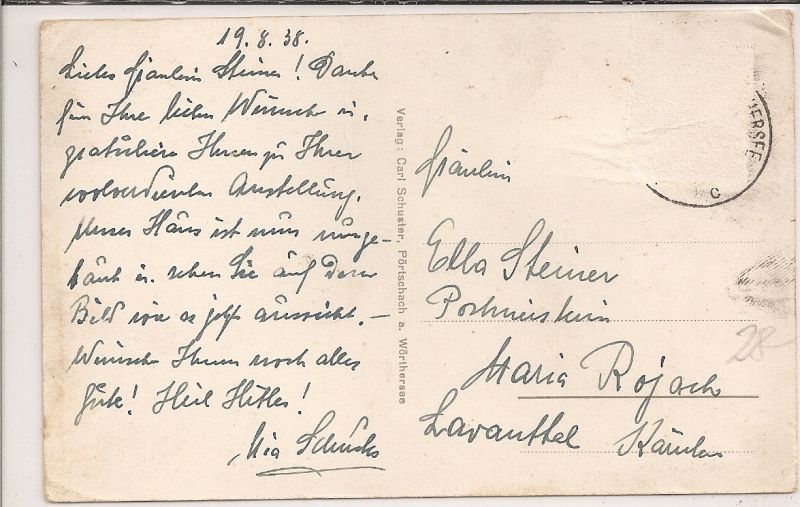 19.8.38.
Liebes Fräulein Steiner! Danke
für Ihre lieben Wünsche u.
gratuliere Ihnen zu Ihrer
wolverdienten Anstellung.
Unser Haus ist nun umge-
baut u. sehen Sie auf dem
Bild wie es jetzt aussieht. –
Wünsche Ihnen noch alles
Gute! Heil Hitler!
Mia
Verlag: Carl Schuster, Pörtschach a. Wörthersee
ERSEE
C
Fräulein
Ella Steiner
Postmeisterin
Maria Rojach
Lavanttal Kärnten
28